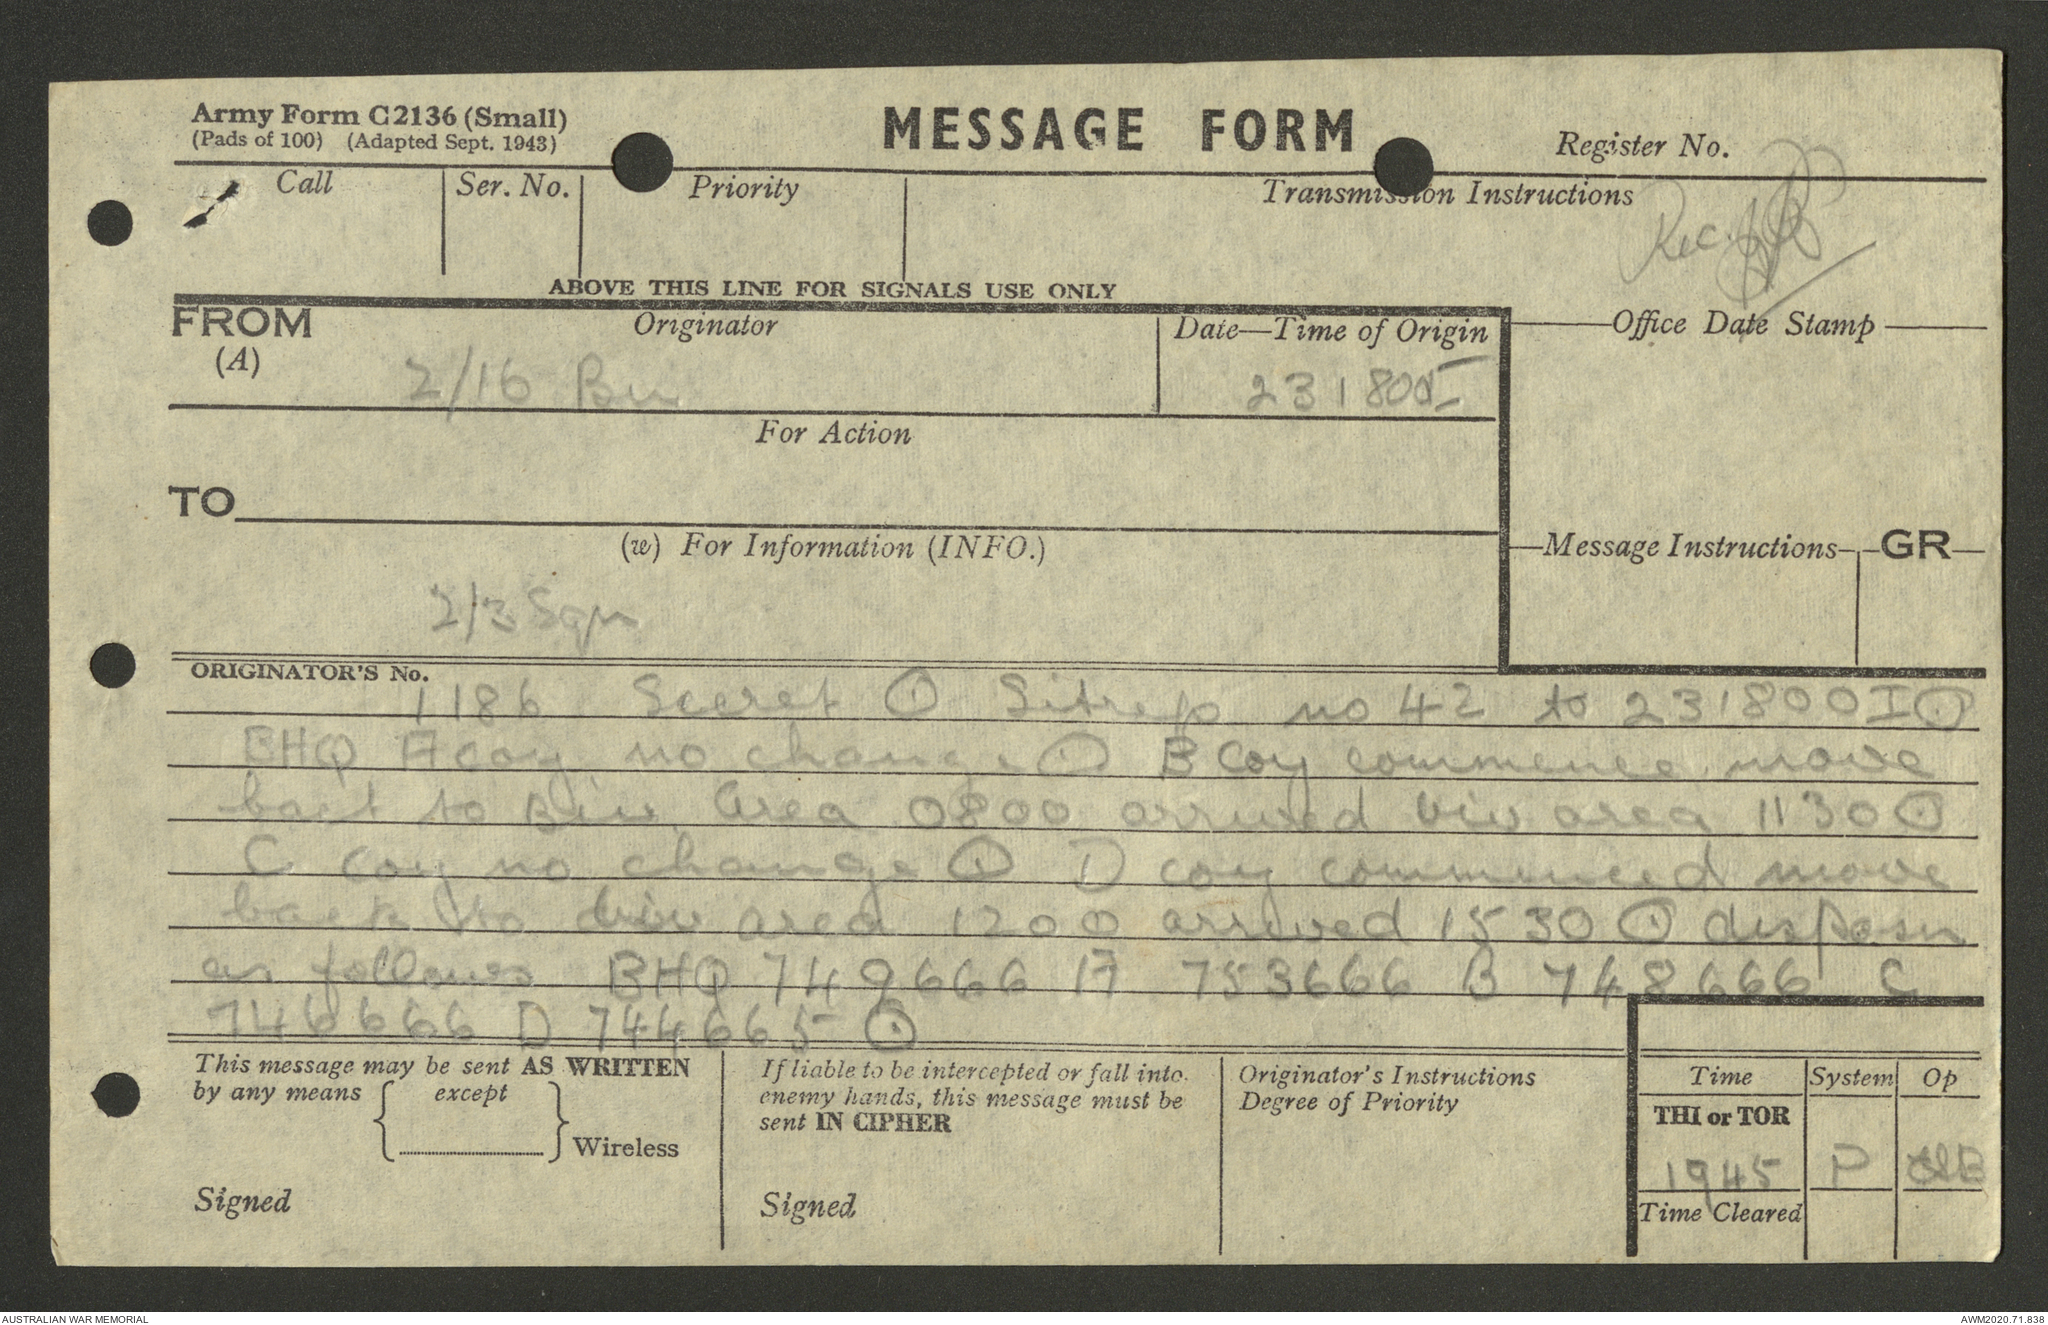 Army Form C2136 (Small)
(Pads of 100) (Adapted Sept. 1943)
MESSAGE FORM
Register No.
Call
Ser. No.
Priority
Transmission Instructions
Rec.
ABOVE THIS LINE FOR SIGNALS USE ONLY
FROM
(A)
Originator
Date—Time of Origin
Office Date Stamp
2/16 Bn
231800
For Action
TO
(w) For Information (INFO.)
Message Instructions
GR
2/3 Sqn
ORIGINATOR'S No.
1186 Secret ⊙ Sitrep no 42 to 231800I ⊙
BHQ A coy no change ⊙ B coy commence move
back to Biv area 0800 arrived biv area 1130 ⊙
C coy no change ⊙ D coy commenced move
back to biv area 1200 arrived 1530 ⊙ disposn
as follows BHQ 749666 A 753666 B 748666 C
746666 D 744665 ⊙
This message may be sent AS WRITTEN
by any means { except } Wireless
Signed
If liable to be intercepted or fall into
enemy hands, this message must be
sent IN CIPHER
Signed
Originator's Instructions
Degree of Priority
Time
System
Op
THI or TOR
1945
P
Time Cleared
AUSTRALIAN WAR MEMORIAL
AWM2020.71.838